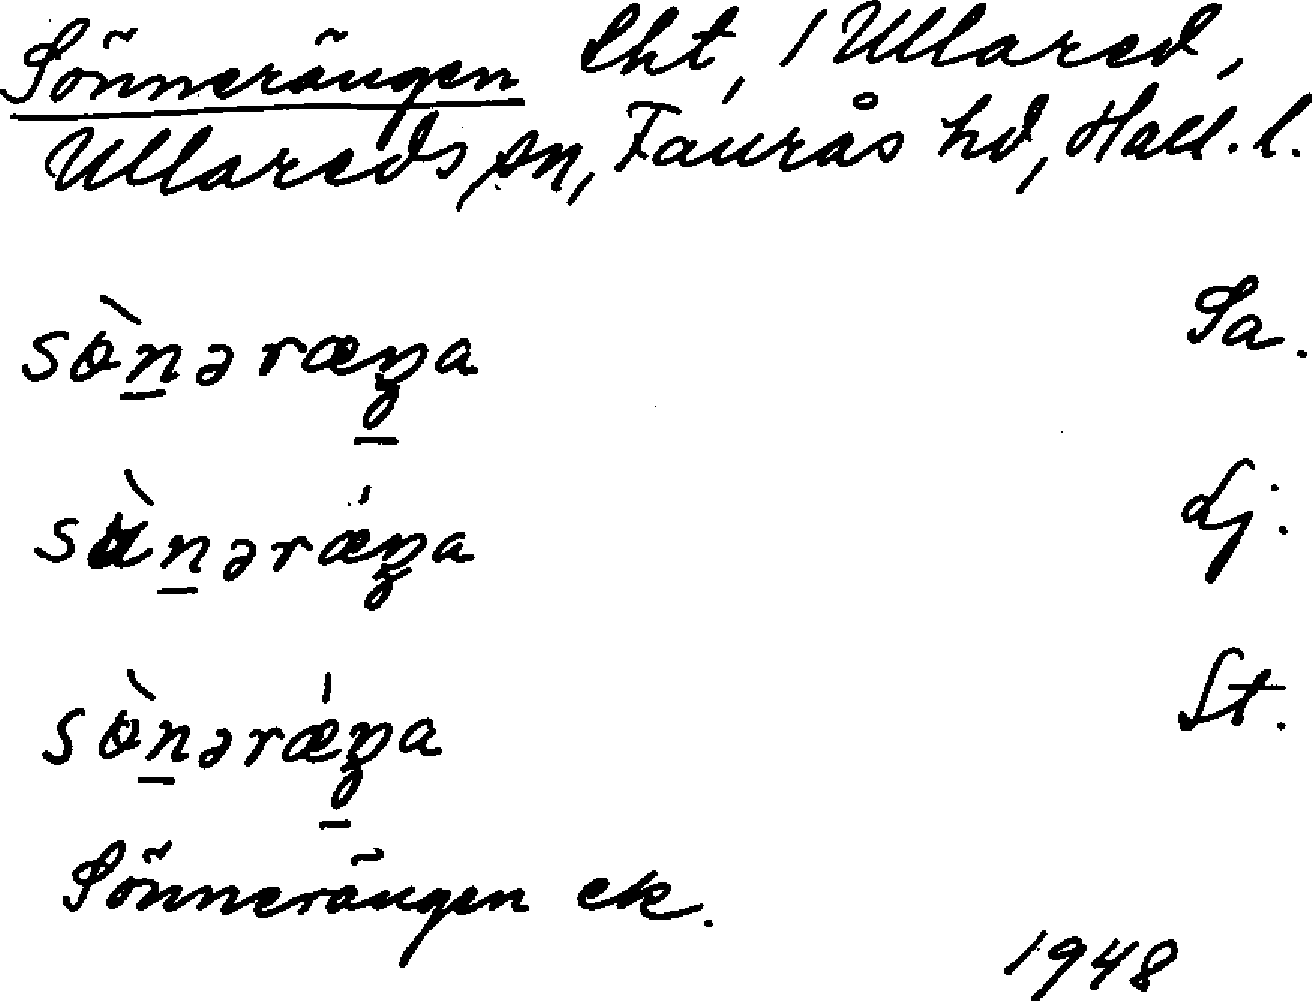 Sönnerängen lht, 1 Ullared,
Ullareds sn, Faurås hd, Hall. l.
sὸ̱nəræŋa Sa.
sὰnəræ̍ŋa Lj.
sònəræ̍ŋa St.
Sönnerängen ek.
1948